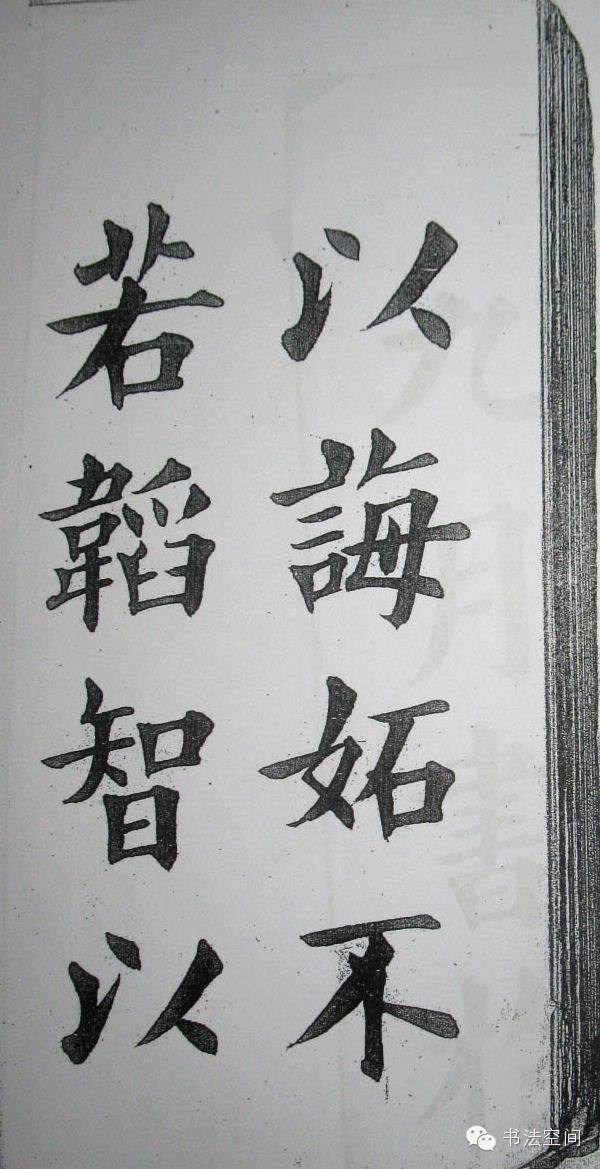 以誨妬不
若韜智以
书法空间